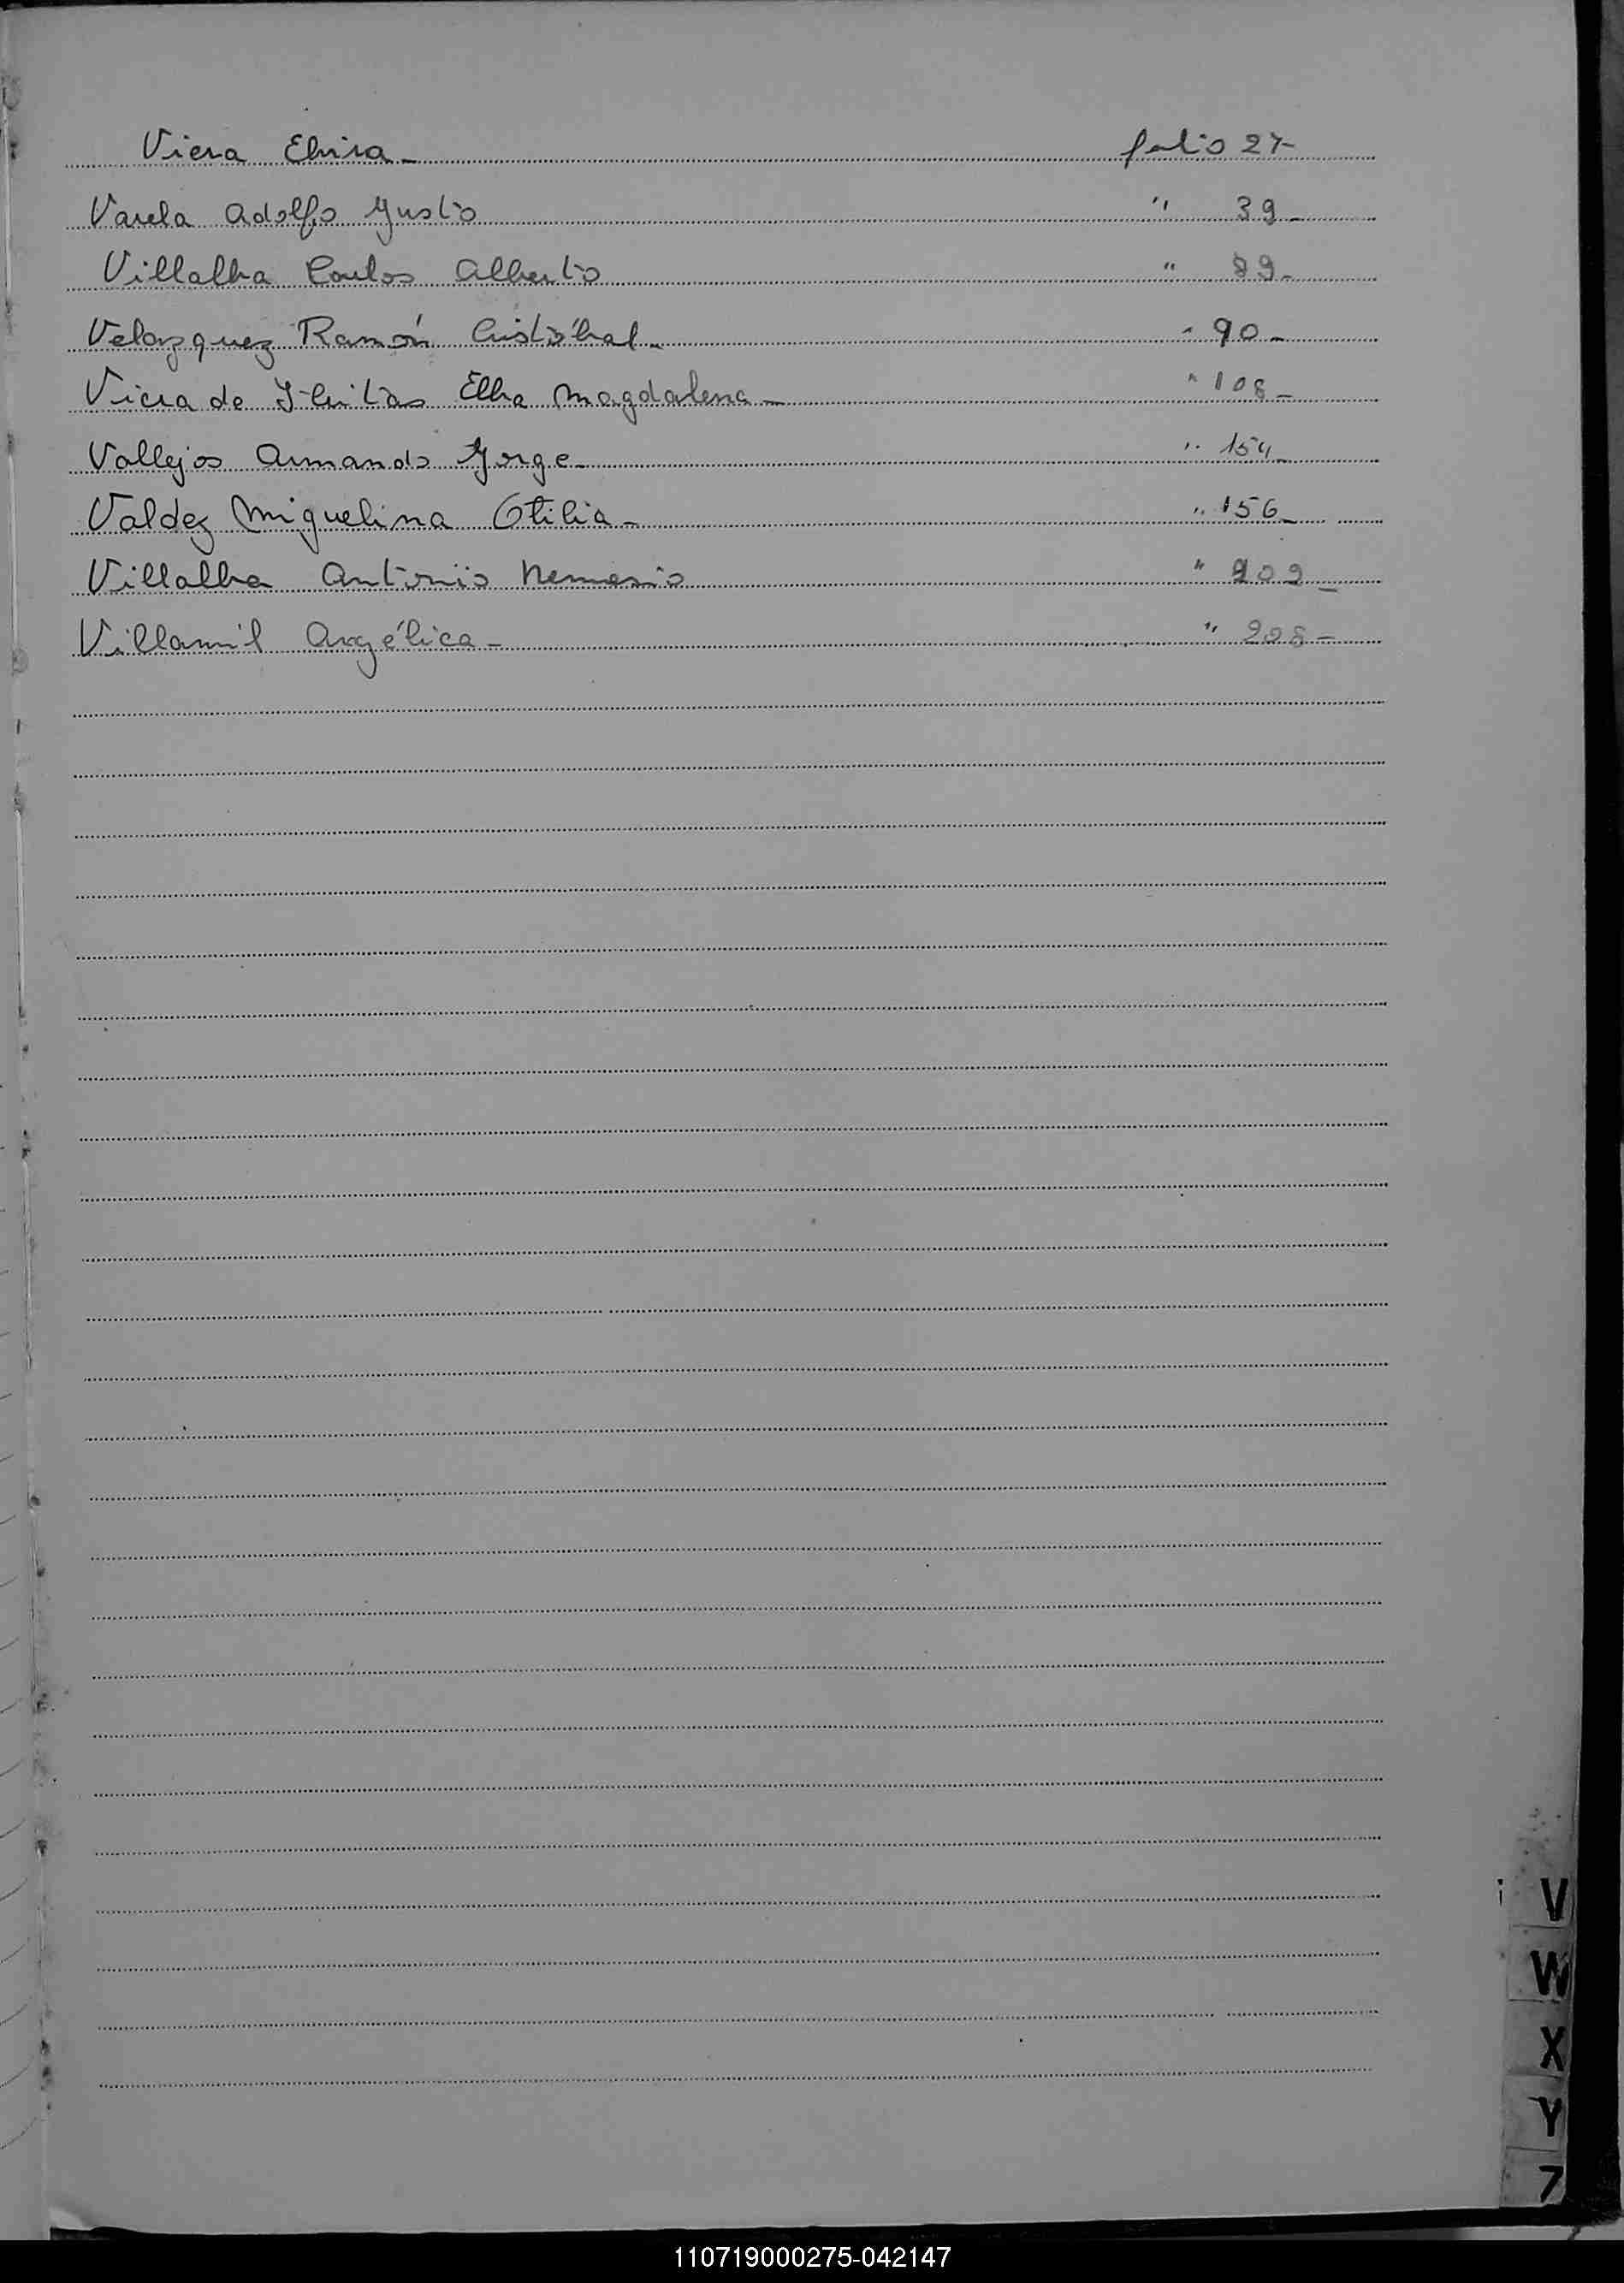 Viera Elvira - folio 27-
Varela Adolfo Justo " 39-
Villalba Carlos Alberto " 89-
Velazquez Ramón Cristóbal - " 90-
Viera de Elba Magdalena - " 108-
Vallejos Armando Jorge - " 154-
Valdez Miguelina Otilia - " 156-
Villalba Antonio Nemesio " 202-
Villamil Angélica - " 208-
V
W
X
Y
Z
110719000275-042147